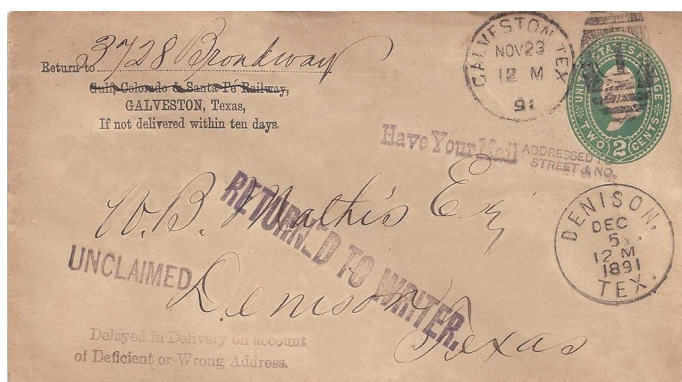 Return to 3728 Broadway
Gulf, Colorado & Santa Fé Railway,
GALVESTON, Texas,
If not delivered within ten days.
GALVESTON, TEX.
NOV 23
12 M
91
UNITED STATES
TWO 2 CENTS.
Have Your Mail ADDRESSED
STREET & NO.
W. B. Mathis Esq
RETURNED TO WRITER.
UNCLAIMED
Denison
Texas
DENISON,
DEC
5
12 M
1891
TEX.
Delayed in Delivery on account
of Deficient or Wrong Address.